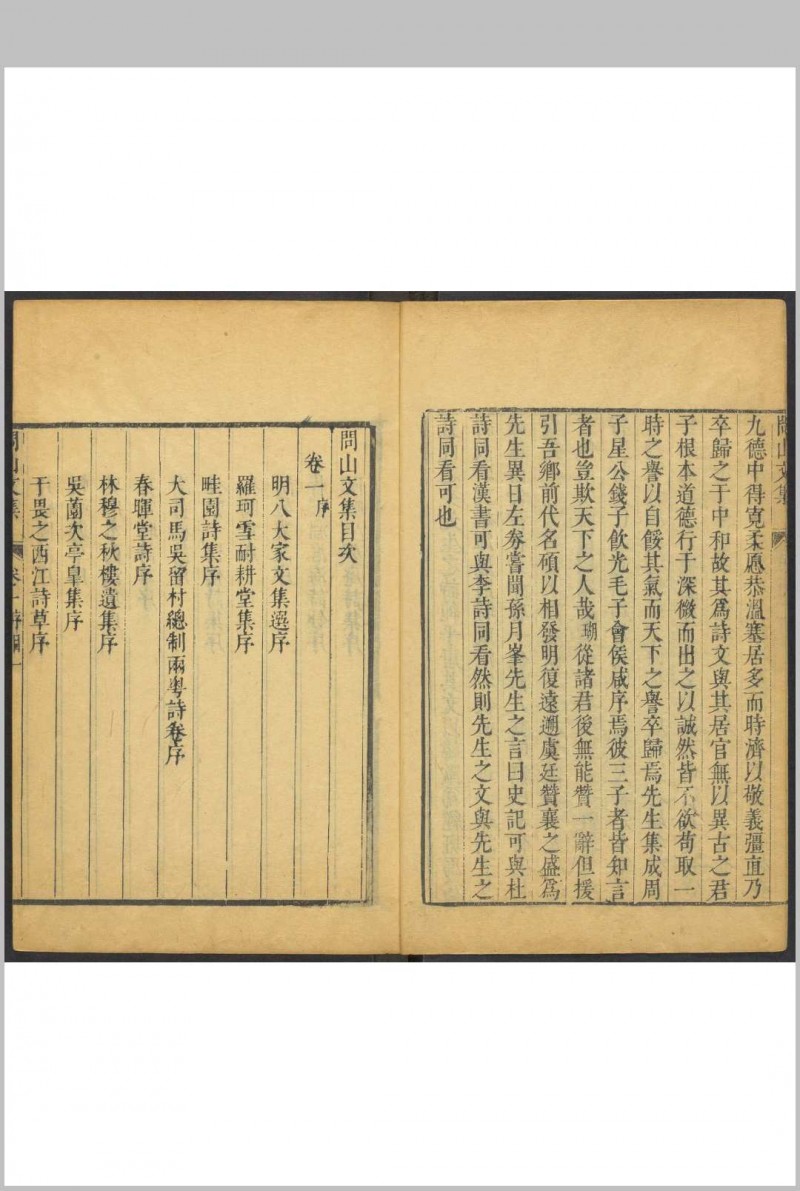 問山文集
九德中得寬柔愿恭溫塞居多而時濟以敬義彊直乃
卒歸之于中和故其爲詩文與其居官無以異古之君
子根本道德行于深微而出之以誠然皆不欲苟取一
時之譽以自餒其氣而天下之譽卒歸焉先生集成周
子星公錢子飮光毛子會侯咸序焉彼三子者皆知言
者也豈欺天下之人哉瑚從諸君後無能贊一辭但援
引吾鄉前代名碩以相發明復遠遡虞廷贊襄之盛爲
先生異日左劵嘗聞孫月峯先生之言曰史記可與杜
詩同看漢書可與李詩同看然則先生之文與先生之
詩同看可也
問山文集目次
卷一序
明八大家文集選序
羅珂雪耐耕堂集序
畦園詩集序
大司馬吳留村總制兩粵詩卷序
春暉堂詩序
林穆之秋樓遺集序
吳薗次亭皐集序
于畏之西江詩草序
問山文集 卷一